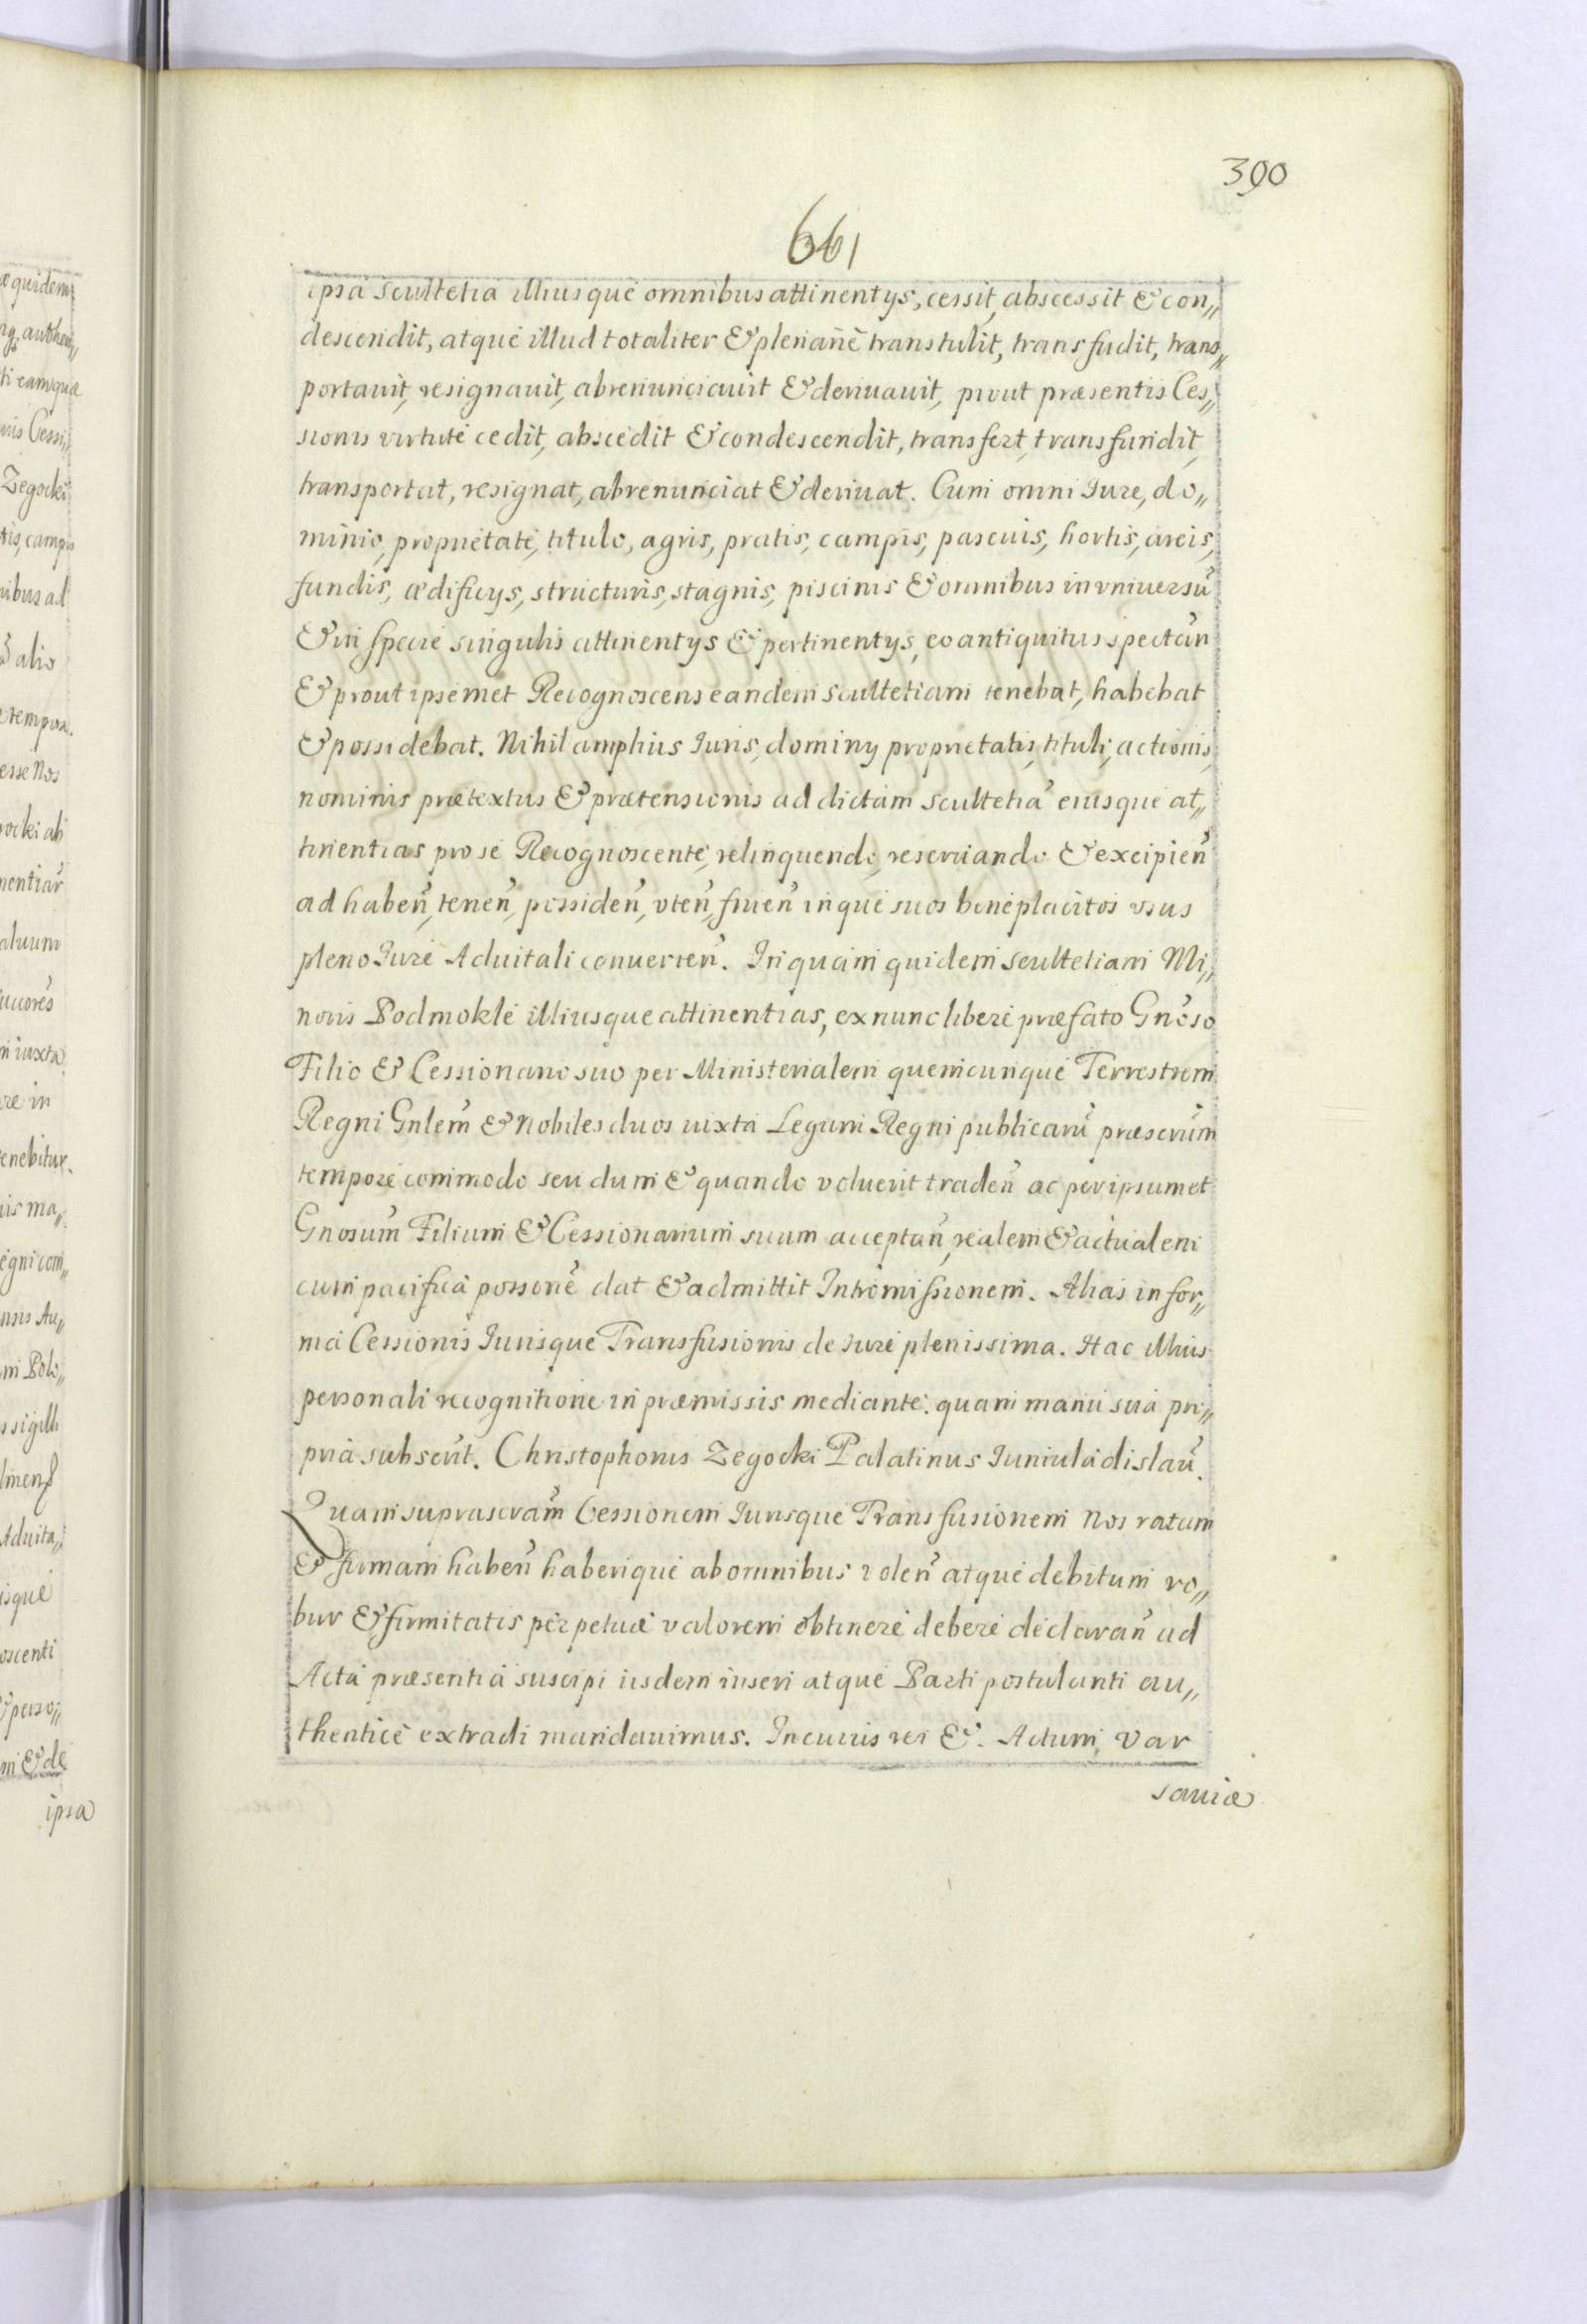 390
661
ipsa Scultetia illiusque omnibus attinentys, cessit, abscessit & con„
descendit, atque illud totaliter & plenarie transtulit, transfudit, trans„
portauit, resignauit, abrenunciauit & deriuauit, prout præsentis Ces„
sionis virtute cedit, abscedit & condescendit, transfert, transfundit,
transportat, resignat, abrenunciat & deriuat. Cum omni Iure, do„
minio, proprietate, titulo, agris, pratis, campis, pascuis, hortis, areis,
fundis, ædificys, structuris, stagnis, piscinis & omnibus in vniuersu̅
& in specie singulis attinentys & pertinentys, eo antiquitus spectan̅
& prout ipsemet Recognoscens eandem scultetiam tenebat, habebat
& possidebat. Nihil amplius Iuris, dominy proprietatis, tituli, actionis,
nominis prætextus & prætensionis ad dictam scultetia̅ eiusque at„
tinentias pro se Recognoscente, relinquendo, reseruando & excipien̅
ad haben̅, tenen̅, possiden̅, vten̅, fruen̅ inque suos beneplacitos vsus
pleno Iure Aduitali conuerten̅. In quam quidem scultetiam Mi„
noris Podmokle illiusque attinentias, ex nunc libere præfato Gnoso
Filio & Cessionario suo per Ministerialem quemcunque Terrestrem
Regni Gnlem̅ & Nobiles duos iuxta Legum Regni publicaru̅ præscru̅m
tempore commodo seu dum & quando voluerit traden̅ ac per ipsummet
Gnosum̅ Filium & Cessionarium suum acceptan̅, realem & actualem
cum pacifica possone̅ dat & admittit Intromissionem. Alias in for„
ma Cessionis Iurisque Transfusionis de iure plenissima. Hac illius
personali recognitione in præmissis mediante. quam manu sua pro„
pria subscrit. Christophorus Zegocki Palatinus Iuniuladislau̅.
Quam suprascram̅ Cessionem Iurisque Transfusionem Nos ratam
& firmam haben̅ haberique ab omnibus volen̅ atque debitum ro„
bur & firmitatis perpetuæ valorem obtinere debere declaran̅ ad
Acta præsentia suscipi iisdem inseri atque Parti postulanti au„
thentice extradi mandauimus. In cuius rei &. Actum, Var
sauiæ